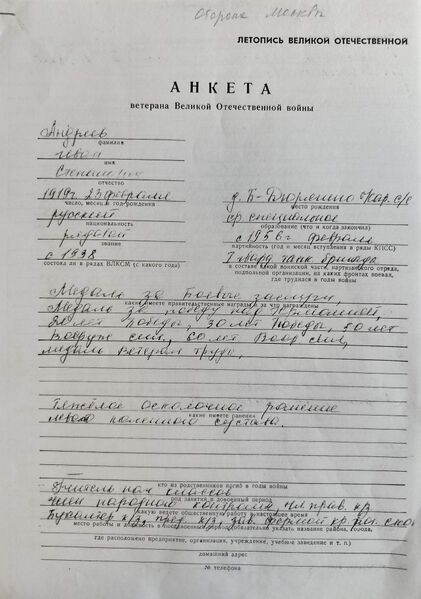 Оборона Москвы
ЛЕТОПИСЬ ВЕЛИКОЙ ОТЕЧЕСТВЕННОЙ
АНКЕТА
ветерана Великой Отечественной войны
Андреев
фамилия
Иван
имя
Степанович
отчество
1919г. 23 февраля
число, месяц и год рождения
д. Б- с/с
место рождения
русский
национальность
ср. специальное
образование (что и когда закончил)
рядовой
звание
с 1956г февраль
партийность (год и месяц вступления в ряды КПСС)
с 1938
состоял ли в рядах ВЛКСМ (с какого года)
7 гвард. танк. бригада
в составе какой воинской части, партизанского отряда,
подпольной организации, на каких фронтах воевал,
где трудился в годы войны
Медали За боевые заслуги,
какие имеете правительственные награды и за что награждены
Медаль за победу над Германией,
20 лет победы, 30 лет Победы, 50 лет
Вооруж сил, 60 лет Воор сил,
медаль Ветеран труда,
Тяжёлое осколочное ранение
какие имеете ранения
левого коленного сустава.
кто из родственников погиб в годы войны
Учитель нач классов
род занятий в довоенный период
Член народного контроля, чл. прав. к/з
какую ведете общественную работу в настоящее время
Бухгалтер к/з, пред. к/з, зав. фермой
место работы и должность в послевоенный период, указать название района, города,
где расположено предприятие, организация, учреждение, учебное заведение и т. п.)
домашний адрес
№ телефона